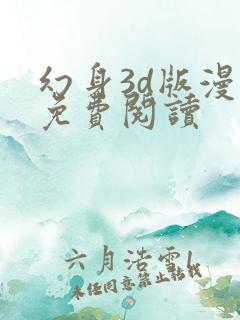 幻身3d版漫
免費閱讀
六月浩雪l
未經同意禁止轉載